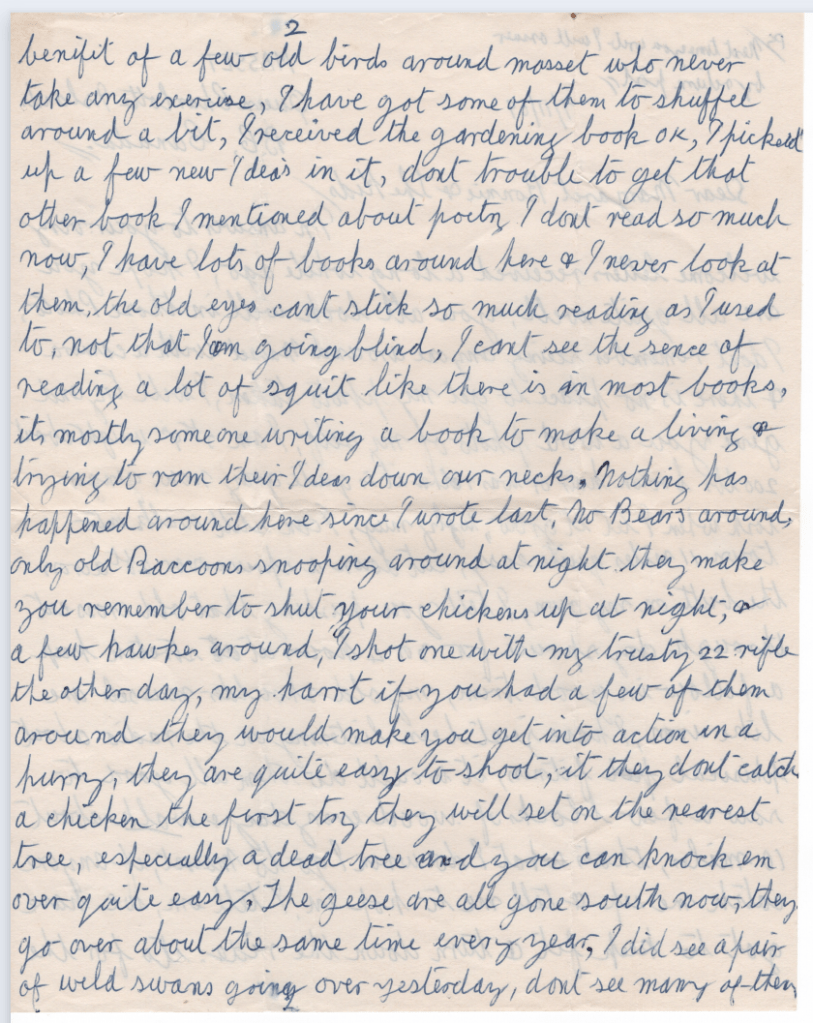 2
benifit of a few old birds around masset who never
take any exercise, I have got some of them to shuffel
around a bit, I received the gardening book OK, I picked
up a few new Idea's in it, dont trouble to get that
other book I mentioned about poetry I dont read so much
now, I have lots of books around here & I never look at
them, the old eyes cant stick so much reading as I used
to, not that I am going blind, I cant see the sence of
reading a lot of squit like there is in most books,
its mostly someone writing a book to make a living &
trying to ram their Ideas down our necks. Nothing has
happened around here since I wrote last, No Bears around,
only old Raccoons snooping around at night they make
you remember to shut your chickens up at night, &
a few hawkes around, I shot one with my trusty 22 rifle
the other day, my harrt if you had a few of them
around they would make you get into action in a
hurry, they are quite easy to shoot, it they dont catch
a chicken the first try they will set on the nearest
tree, especially a dead tree and you can knock em
over quite easy, The geese are all gone south now, they
go over about the same time every year, I did see a pair
of wild swans going over yesterday, dont see many of them
2